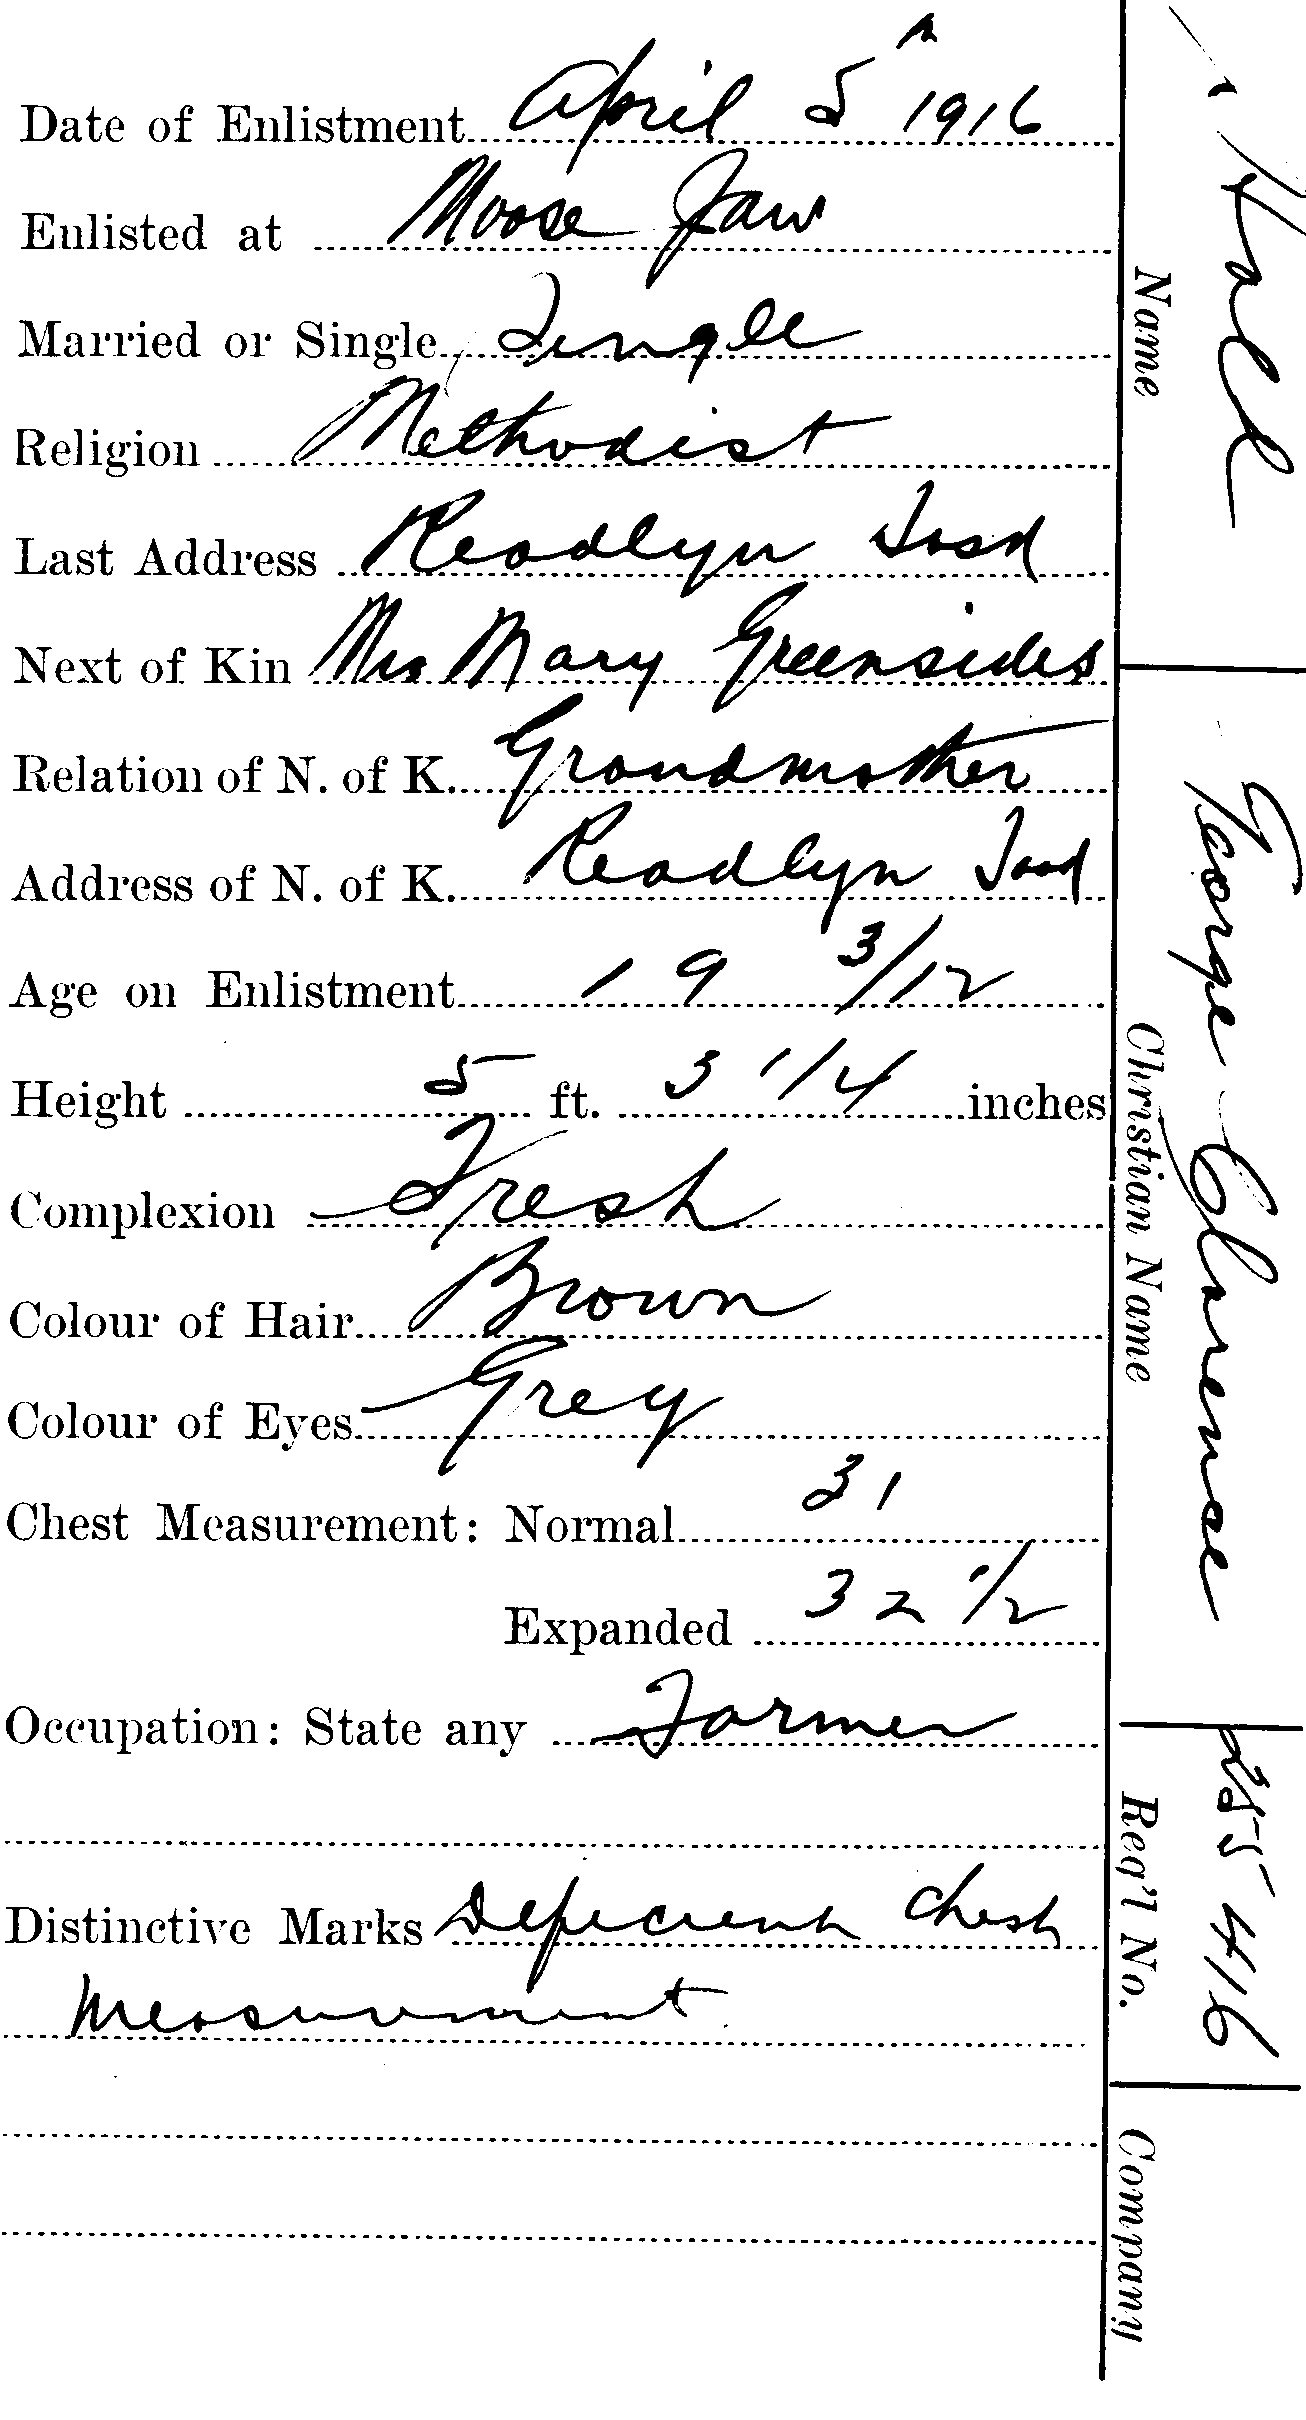 Date of Enlistment April 5th 1916
Enlisted at Moose Jaw
Married or Single Single
Religion Methodist
Last Address Readlyn Sask
Next of Kin Mrs Mary Greensides
Relation of N. of K. Grandmother
Address of N. of K. Readlyn Sask
Age on Enlistment 19 3/12
Height 5 ft. 3 1/4 inches
Complexion Fresh
Colour of Hair Brown
Colour of Eyes Grey
Chest Measurement: Normal 31
Expanded 32 1/2
Occupation: State any Farmer
Distinctive Marks Deficient Chest
Measurment
Hall George Clarense 255416
Name Christian Name Reg'l No. Company